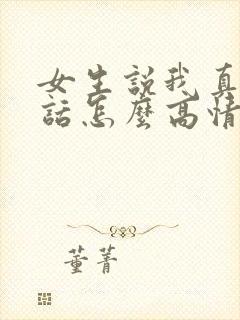 女生說我真
話怎麼高情
董菁